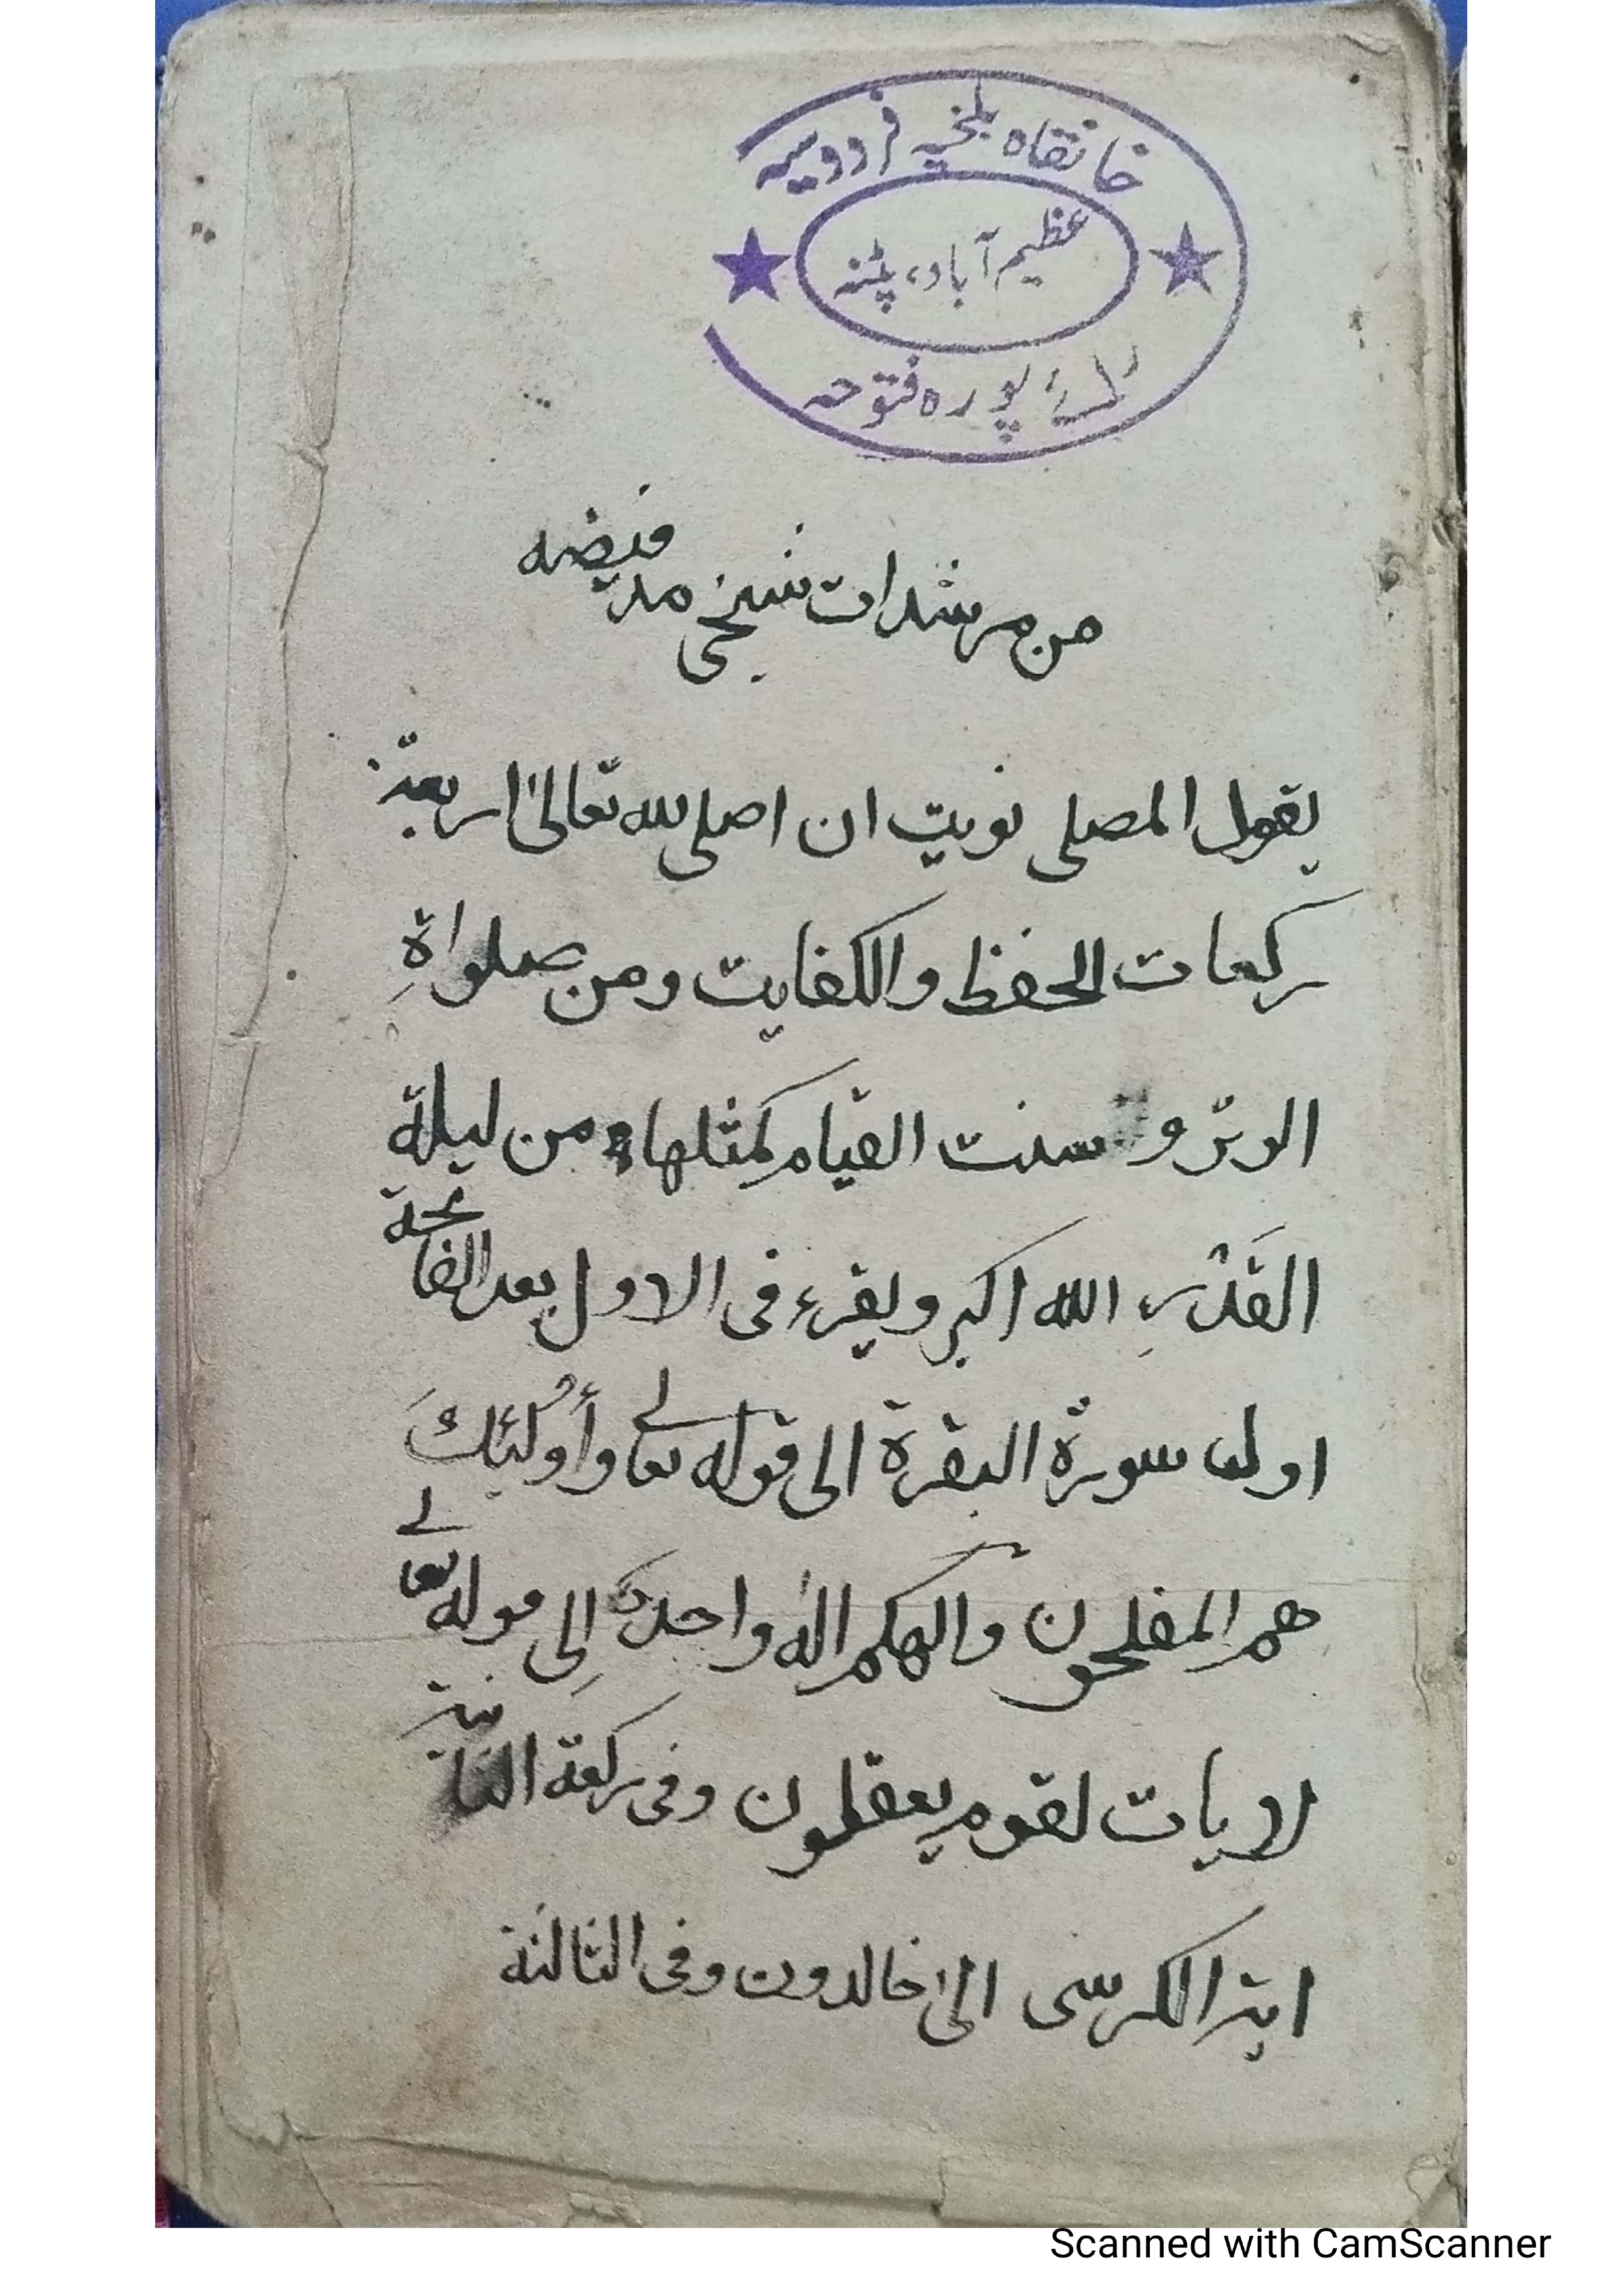 خانقاه بلخیہ فردوسیہ
عظیم آباد، پٹنہ
پوره فتوحہ
من مرشدات شیخی مد فیضه
یقول المصلی نویت ان اصلی لله تعالیٰ اربعة
رکعات الحفظ والکفایت ومن صلواةِ
الوتر و سنت القیام کمثلها من لیلة
القَدْرِ الله اکبر ویقرء فی الاول بعد الفاتحة
اول سورة البقرة الی قوله تعالے وأُولٰئِكَ
هم المفلحون والهکم الٰه واحد إلی قوله تعالے
لایات لقوم یعقلون وفی رکعة الثانیة
ایة الکرسی الیٰ خالدون وفی الثالثة
Scanned with CamScanner